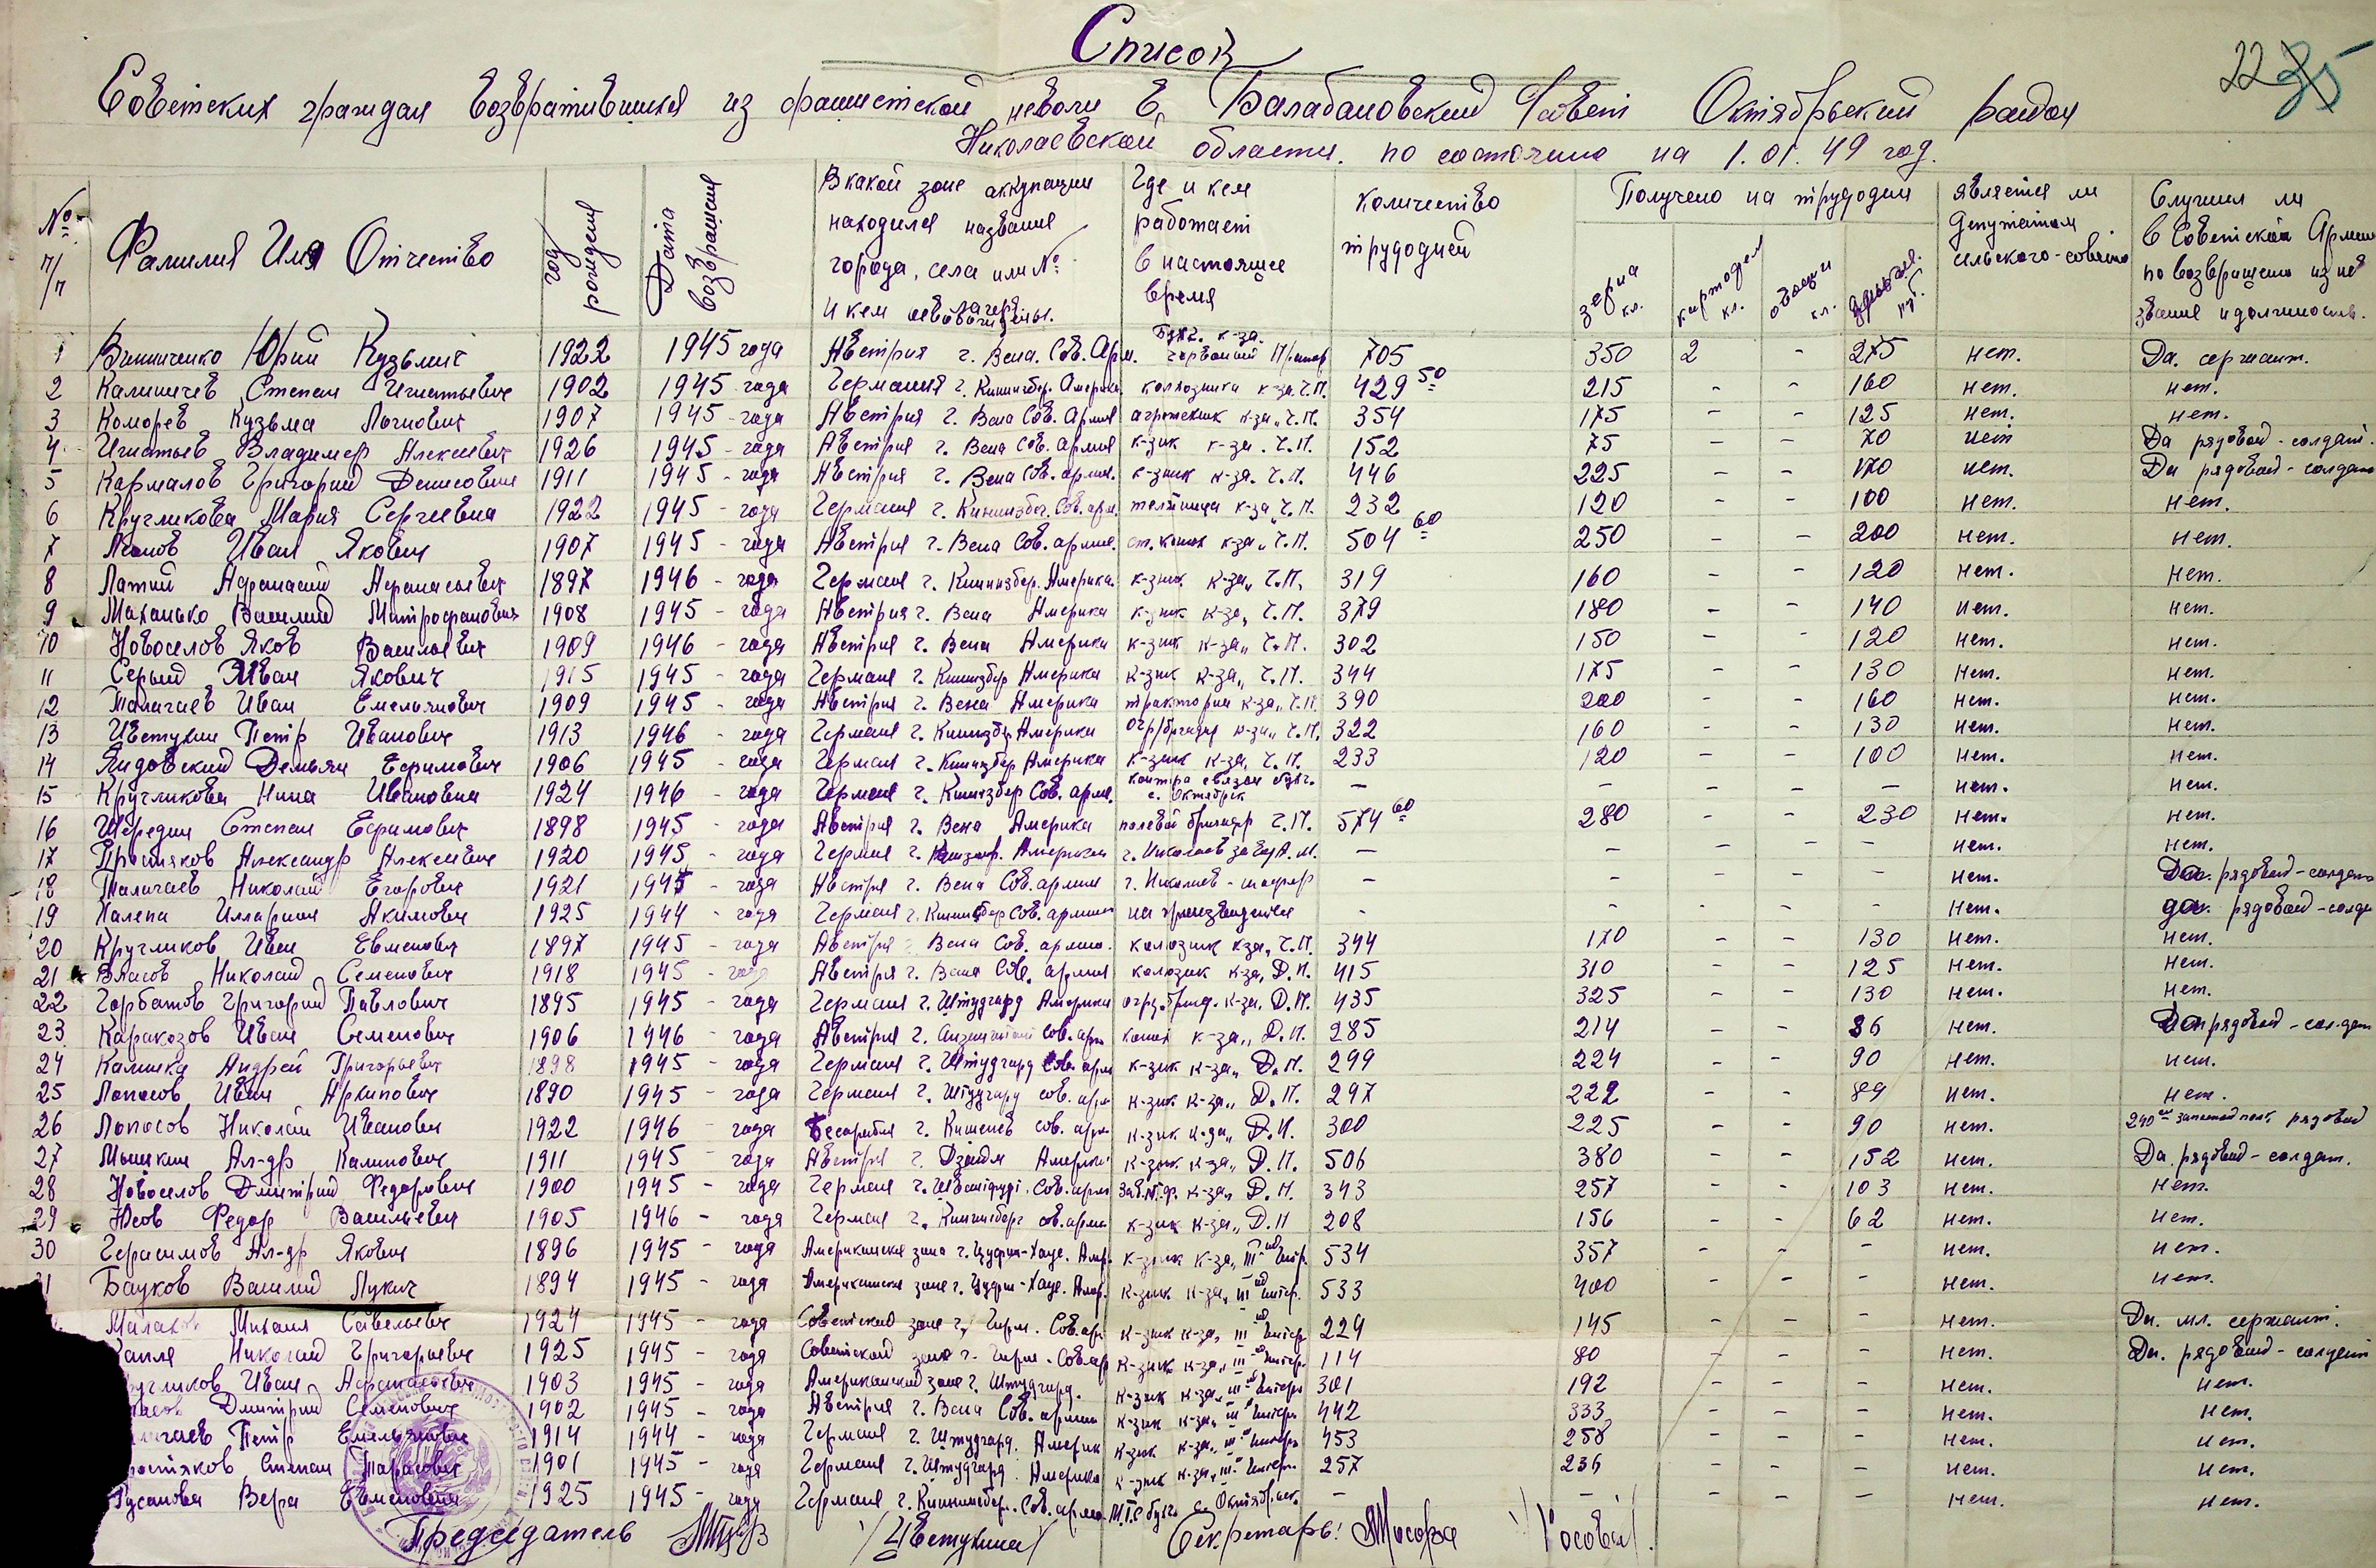 Список
22 35
Советских граждан возвратившихся из фашистской неволи Балабановский Совет Октябрьский район
Николаевской области. по состоянию на 1.01.49 год.
№ п/п Фамилия Имя Отчество год рождения Дата возвращения В какой зоне аккупации находился название города, села или № лагеря и кем освобождены. Где и кем работает в настоящее время Количество трудодней Получено на трудодни зерна кл. картофел кл. овощи кл. руб. является ли депутатом сельского-совета Служил ли в Советской Армии по возвращению из неё звание и должность.
1 Винниченко Юрий Кузьмич 1922 1945 года Австрия г. Вена. Сов. Арм. Бухг. к-за. 705 350 2 - 275 нет. Да. сержант.
2 Калиничев Степан Игнатьевич 1902 1945-года Германия г. Кинингбер. Америка. к-за Ч.П. 429 50 215 - - 160 нет. нет.
3 Коморев Кузьма Логнович 1907 1945-года Австрия г. Вена Сов. Армия агротехник к-за „Ч.П. 354 175 - - 125 нет. нет.
4 Игнатьев Владимер Алексеевич 1926 1945-года Австрия г. Вена Сов. армия к-зник к-за. Ч.П. 152 75 - - 70 нет Да рядовой-солдат.
5 Кармалов Григорий Денисович 1911 1945-года Австрия г. Вена Сов. армия. к-зник к-за. Ч.П. 446 225 - - 170 нет. Да рядовой-солдат
6 Кругликова Мария Сергеевна 1922 1945-года Германия г. Кинингбер. Сов. арм. к-за „Ч.П. 232 120 - - 100 нет. нет.
7 Иван Якович 1907 1945-года Австрия г. Вена Сов. армия. ст. конюх к-за „Ч.П. 504 60 250 - - 200 нет. нет.
8 Латий Афанасий Афанасьевич 1897 1946-года Германия г. Кинингбер. Америка. к-зник к-за „Ч.П. 319 160 - - 120 нет. нет.
9 Маханько Василий Митрофанович 1908 1945-года Австрия г. Вена Америка к-зник к-за „Ч.П. 379 180 - - 140 нет. нет.
10 Новоселов Яков Васильевич 1909 1946-года Австрия г. Вена Америка к-зник к-за „Ч.П. 302 150 - - 120 нет. нет.
11 Серый Иван Якович 1915 1945-года Германия г. Кинингбер Америка к-зник к-за „Ч.П. 344 175 - - 130 нет. нет.
12 Талагаев Иван Емельянович 1909 1945-года Австрия г. Вена Америка к-за „Ч.П. 390 200 - - 160 нет. нет.
13 Цветухин Петр Иванович 1913 1946-года Германия г. Кинингбер Америка к-за „Ч.П. 322 160 - - 130 нет. нет.
14 Демьян Ефимович 1906 1945-года Германия г. Кинингбер Америка к-зник к-за, Ч.П. 233 120 - - 100 нет. нет.
15 Кругликова Нина Ивановна 1924 1946-года Германия г. Кинингбер Сов. арм. контра связи бухг. с. Октябрск - - - - - нет. нет.
16 Шередин Степан Ефимович 1898 1945-года Австрия г. Вена Америка полевой бригадир Ч.П. 574 60 280 - - 230 нет. нет.
17 Простяков Александр Алексеевич 1920 1945-года Германия г. Америкой г. Николаев - - - - - нет. нет.
18 Талагаев Николай Егорович 1921 1945-года Австрия г. Вена Сов. армия г. Николаев-шофер - - - - - нет. Да. рядовой-солдат
19 Халепа Илларион Акимович 1925 1944-года Германия г. Сов. армия на производстве - - - - - нет. да. рядовой-солда
20 Кругликов Иван Евменович 1897 1945-года Австрия г. Вена Сов. армия. колхозник к-за „Ч.П. 344 170 - - 130 нет. нет.
21 Власов Николай Семенович 1918 1945-года Австрия г. Вена Сов. армия колхозник к-за „Д.П. 415 310 - - 125 нет. нет.
22 Горбатов Григорий Павлович 1895 1945-года Германия г. Штудгард Америка к-за „Д.П. 435 325 - - 130 нет. нет.
23 Каракозов Иван Семенович 1906 1946-года Австрия г. Сов. арм конюх к-за „Д.П. 285 214 - - 86 нет. Да рядовой-солдат
24 Калинка Андрей Григорьевич 1898 1945-года Германия г. Штудгард Сов. арм к-зник к-за „Д.П. 299 224 - - 90 нет. нет.
25 Лопасов Иван Архипович 1890 1945-года Германия г. Штудгард сов. арм к-зник к-за „Д.П. 297 222 - - 89 нет. нет.
26 Лопасов Николай Иванович 1922 1946-года Бесарабия г. Кишенев сов. арм. к-зник к-за „Д.П. 300 225 - - 90 нет. 240 запасной полк рядовой
27 Мышкин Ал-др Калинович 1911 1945-года Австрия г. Америка к-зник к-за „Д.П. 506 380 - - 152 нет. Да. рядовой-солдат.
28 Новоселов Дмитрий Федорович 1900 1945-года Германия г. Сов. арм к-за „Д.П. 343 257 - - 103 нет. нет.
29 Носов Федор Васильевич 1905 1946-года Германия г. Кинингберг сов. арм к-зник к-за „Д.П 208 156 - - 62 нет. нет.
30 Герасимов Ал-др Якович 1896 1945-года Американская зона г. Амер. к-зник к-за „III ий Интер. 534 357 - - - нет. нет.
1 Бауков Василий Лукич 1894 1945-года Американская зона г. Амер. к-зник к-за „III ий интер. 533 400 - - - нет. нет.
Малахов Михаил Савельевич 1924 1945-года Советской зоне г. Герм. Сов. арм к-зник к-за „III ий Интер 229 145 - - - нет. Да. мл. сержант.
Николай Григорьевич 1925 1945-года Советской зоне г. Герм. Сов. арм к-зник к-за „III ий Интер. 114 80 - - - нет. Да. рядовой-солдат
ругликов Иван Афанасьевич 1903 1945-года Американской зоне г. Штудгард. к-зник к-за „III Интерн 301 192 - - - нет. нет.
Дмитрий Семенович 1902 1945-года Австрия г. Вена Сов. армии к-зник к-за „III Интерн 442 333 - - - нет. нет.
агаев Петр Емельянович 1914 1944-года Германия г. Штудгард. Америк к-зник к-за „III Интерн 453 258 - - - нет. нет.
ростяков Степан Тарасович 1901 1945-года Германия г. Штудгард. Америка к-зник к-за „III Интер. 257 236 - - - нет. нет.
Русанова Вера Евменовна 1925 1945-года Германия г. Кинингбер. Сов. армия М.Т.С бухг с. Октябрьск. - - - - - нет. нет.
Председатель /Цветухина/ Секретарь: /Носовой/